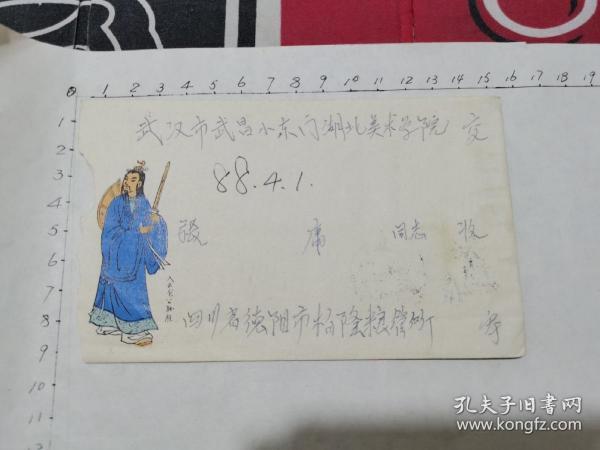 0 1 2 3 4 5 6 7 8 9 10 11 12 13 14 15 16 17 18 19
1
2
3
4
5
6
7
8
9
10
11
武汉市武昌小东门湖北美术学院 交
88.4.1.
张 席 同志 收
四川省德阳市柏隆粮管所 寄
孔夫子旧书网
www.kongfz.com